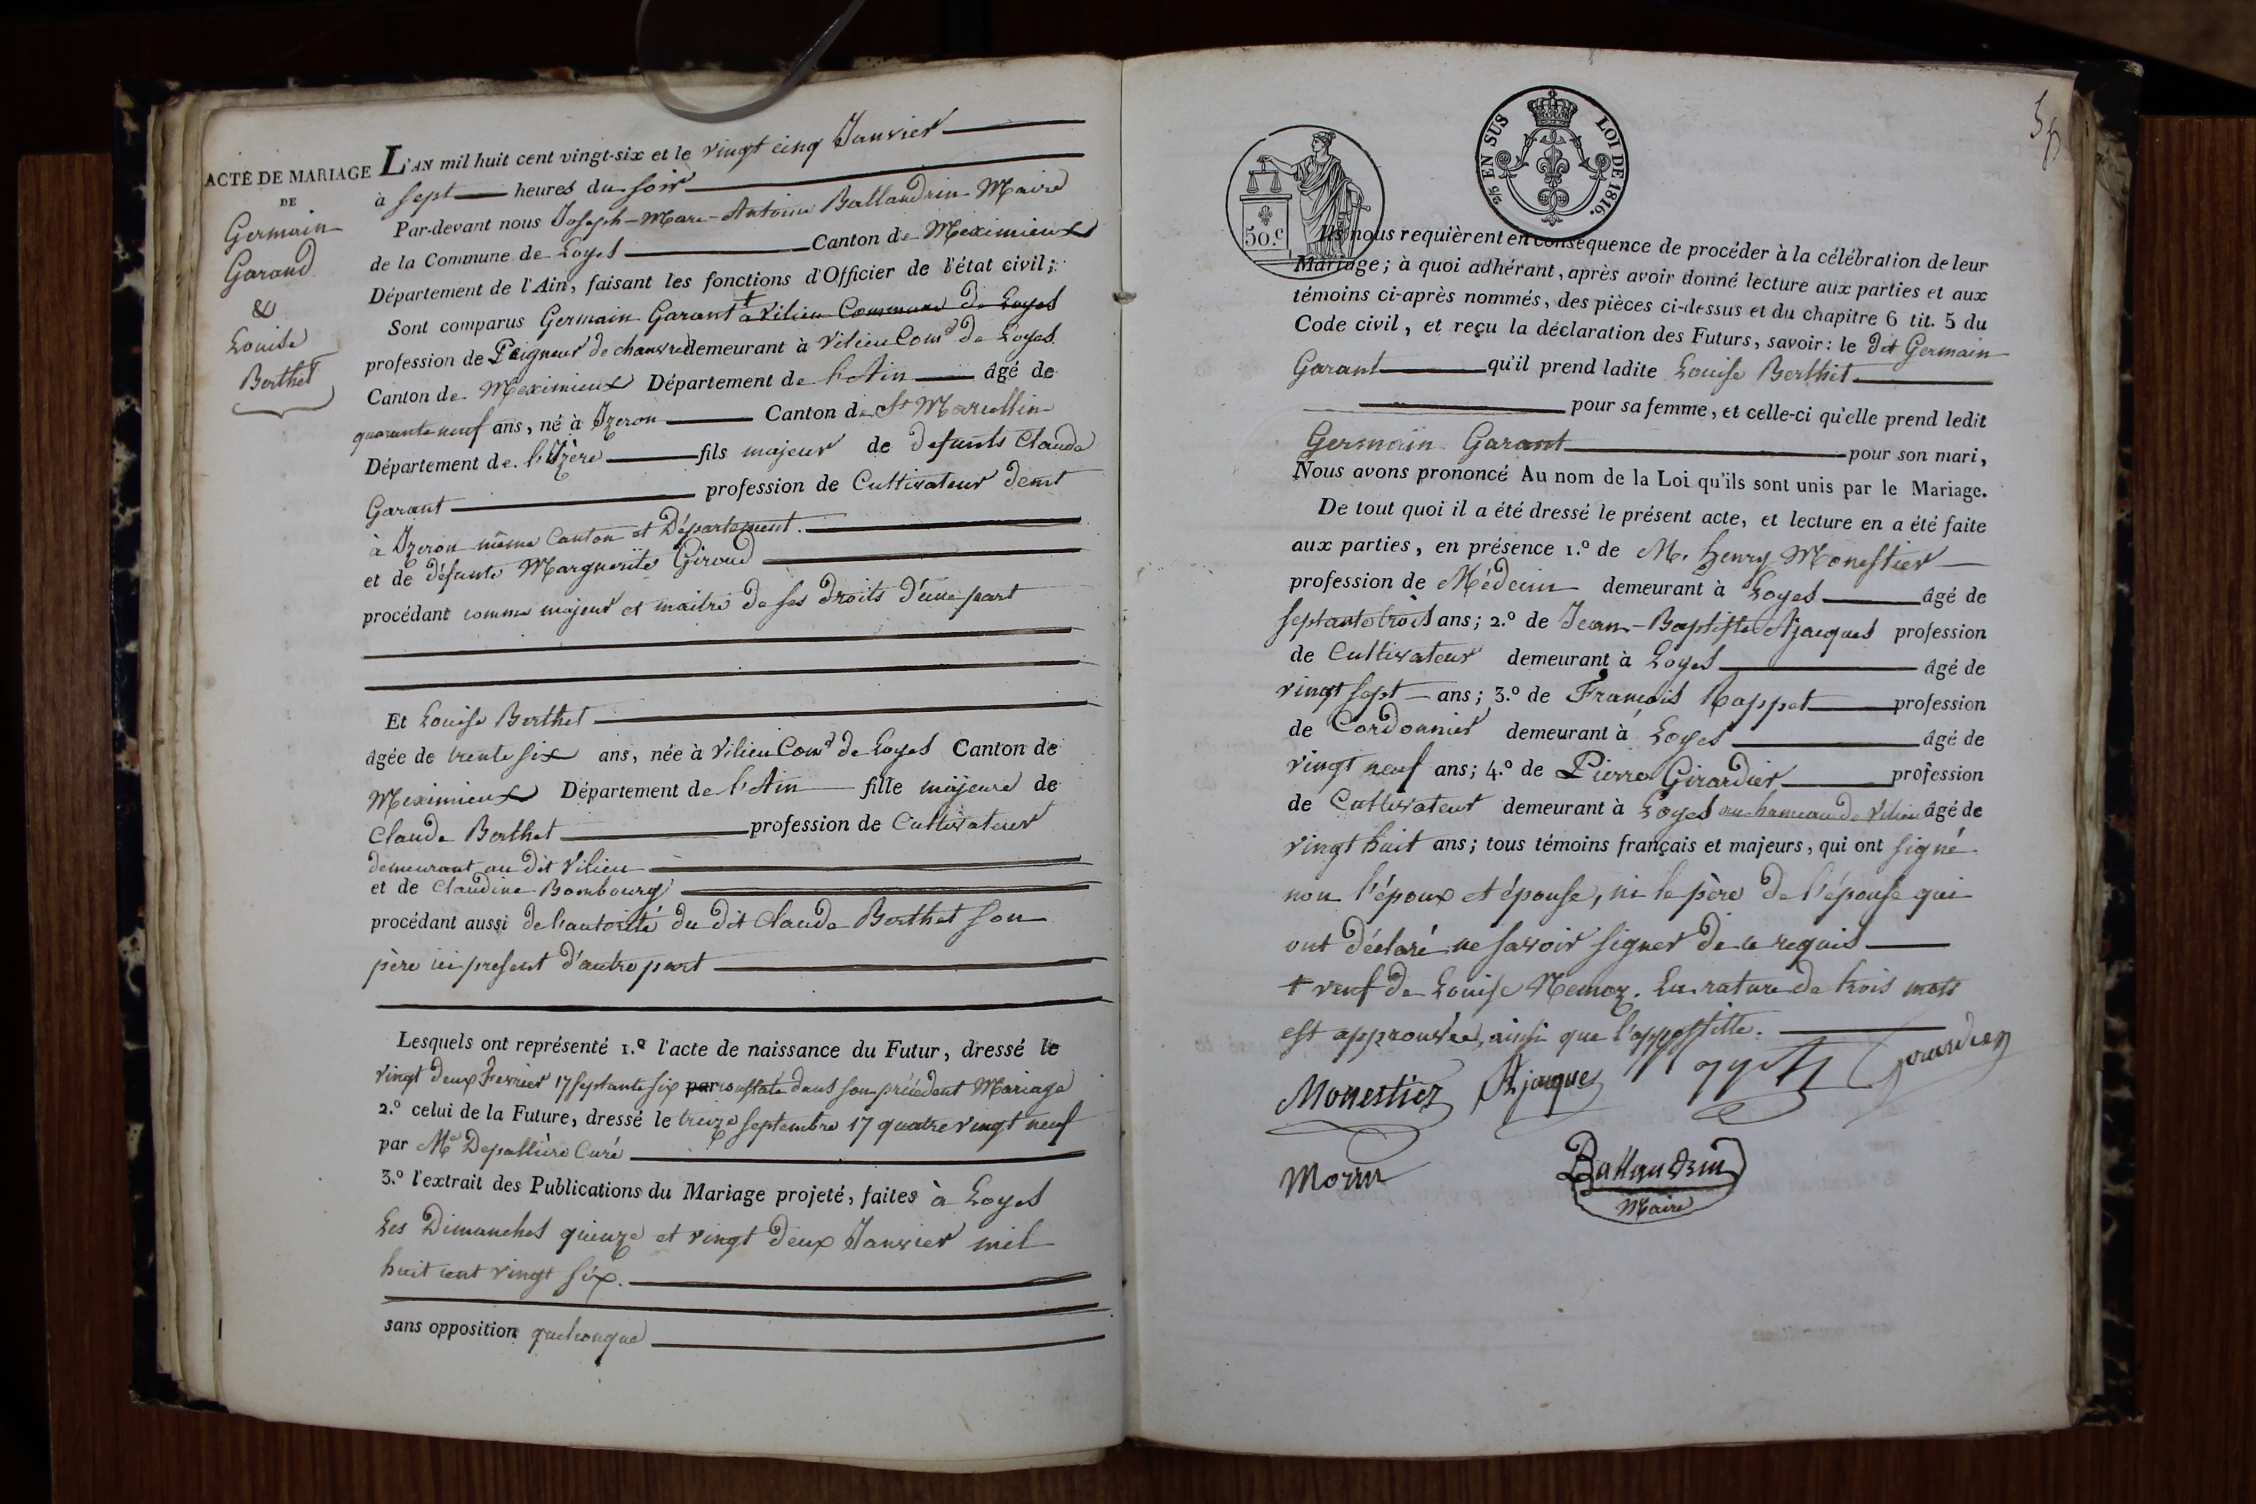 ACTE DE MARIAGE
DE
Germain
Garand
&
Louise
Berthet
L'AN mil huit cent vingt-six et le vingt cinq Janvier
à sept heures du soir
Par-devant nous Joseph-Marc-Antoine Ballandrin Maire
de la Commune de Loyes Canton de Meximieux
Département de l'Ain, faisant les fonctions d'Officier de l'état civil;
Sont comparus Germain Garant + à Vilieu Commune de Loyes
profession de Peigneur de chanvre demeurant à Vilieu Comd de Loyes
Canton de Meximieux Département de l'Ain âgé de
quarante neuf ans, né à Izeron Canton de St Marcellin
Département de l'Izère fils majeur de defunts Claude
Garant profession de Cultivateur demt
à Izeron même Canton et Département.
et de défunte Marguerite Giroud
procédant comme majeur et maitre de ses droits d'une part
Et Louise Berthet
âgée de trente six ans, née à Vilieu Comd de Loyes Canton de
Meximieux Département de l'Ain fille majeure de
Claude Berthet profession de Cultivateur
demeurant au dit Vilieu
et de Claudine Bombourg
procédant aussi de l'autorité du dit Claude Berthet son
père ici present d'autre part
Lesquels ont représenté 1.º l'acte de naissance du Futur, dressé le
vingt deux Fevrier 17 septante six par constaté dans son précédent Mariage
2.º celui de la Future, dressé le treize septembre 17 quatre vingt neuf
par Me Depallière Curé
3.º l'extrait des Publications du Mariage projeté, faites à Loyes
Les Dimanches quinze et vingt deux Janvier mil
huit cent vingt six.
sans opposition quelconque
50.c
2/5 EN SUS LOI DE 1816.
Ils nous requièrent en conséquence de procéder à la célébration de leur
Mariage; à quoi adhérant, après avoir donné lecture aux parties et aux
témoins ci-après nommés, des pièces ci-dessus et du chapitre 6 tit. 5 du
Code civil, et reçu la déclaration des Futurs, savoir: le dit Germain
Garant qu'il prend ladite Louise Berthet
pour sa femme, et celle-ci qu'elle prend ledit
Germain Garant pour son mari,
Nous avons prononcé Au nom de la Loi qu'ils sont unis par le Mariage.
De tout quoi il a été dressé le présent acte, et lecture en a été faite
aux parties, en présence 1.º de M. henry Monestier
profession de Médecin demeurant à Loyes âgé de
septante trois ans; 2.º de Jean-Baptiste Ajacques profession
de Cultivateur demeurant à Loyes âgé de
vingt sept ans; 3.º de François Rappet profession
de Cordonnier demeurant à Loyes âgé de
vingt neuf ans; 4.º de Pierre Girardier profession
de Cultivateur demeurant à Loyes au hameau de Vilieu âgé de
vingt huit ans; tous témoins français et majeurs, qui ont signé
non l'époux et épouse, ni le père de l'épouse qui
ont déclaré ne savoir signer de ce requis
+ veuf de Louise Nemoz. La rature de trois mots
est approuvée, ainsi que l'appostille.
Monestier Ajacques Girardier
Morin Ballandrin
Maire